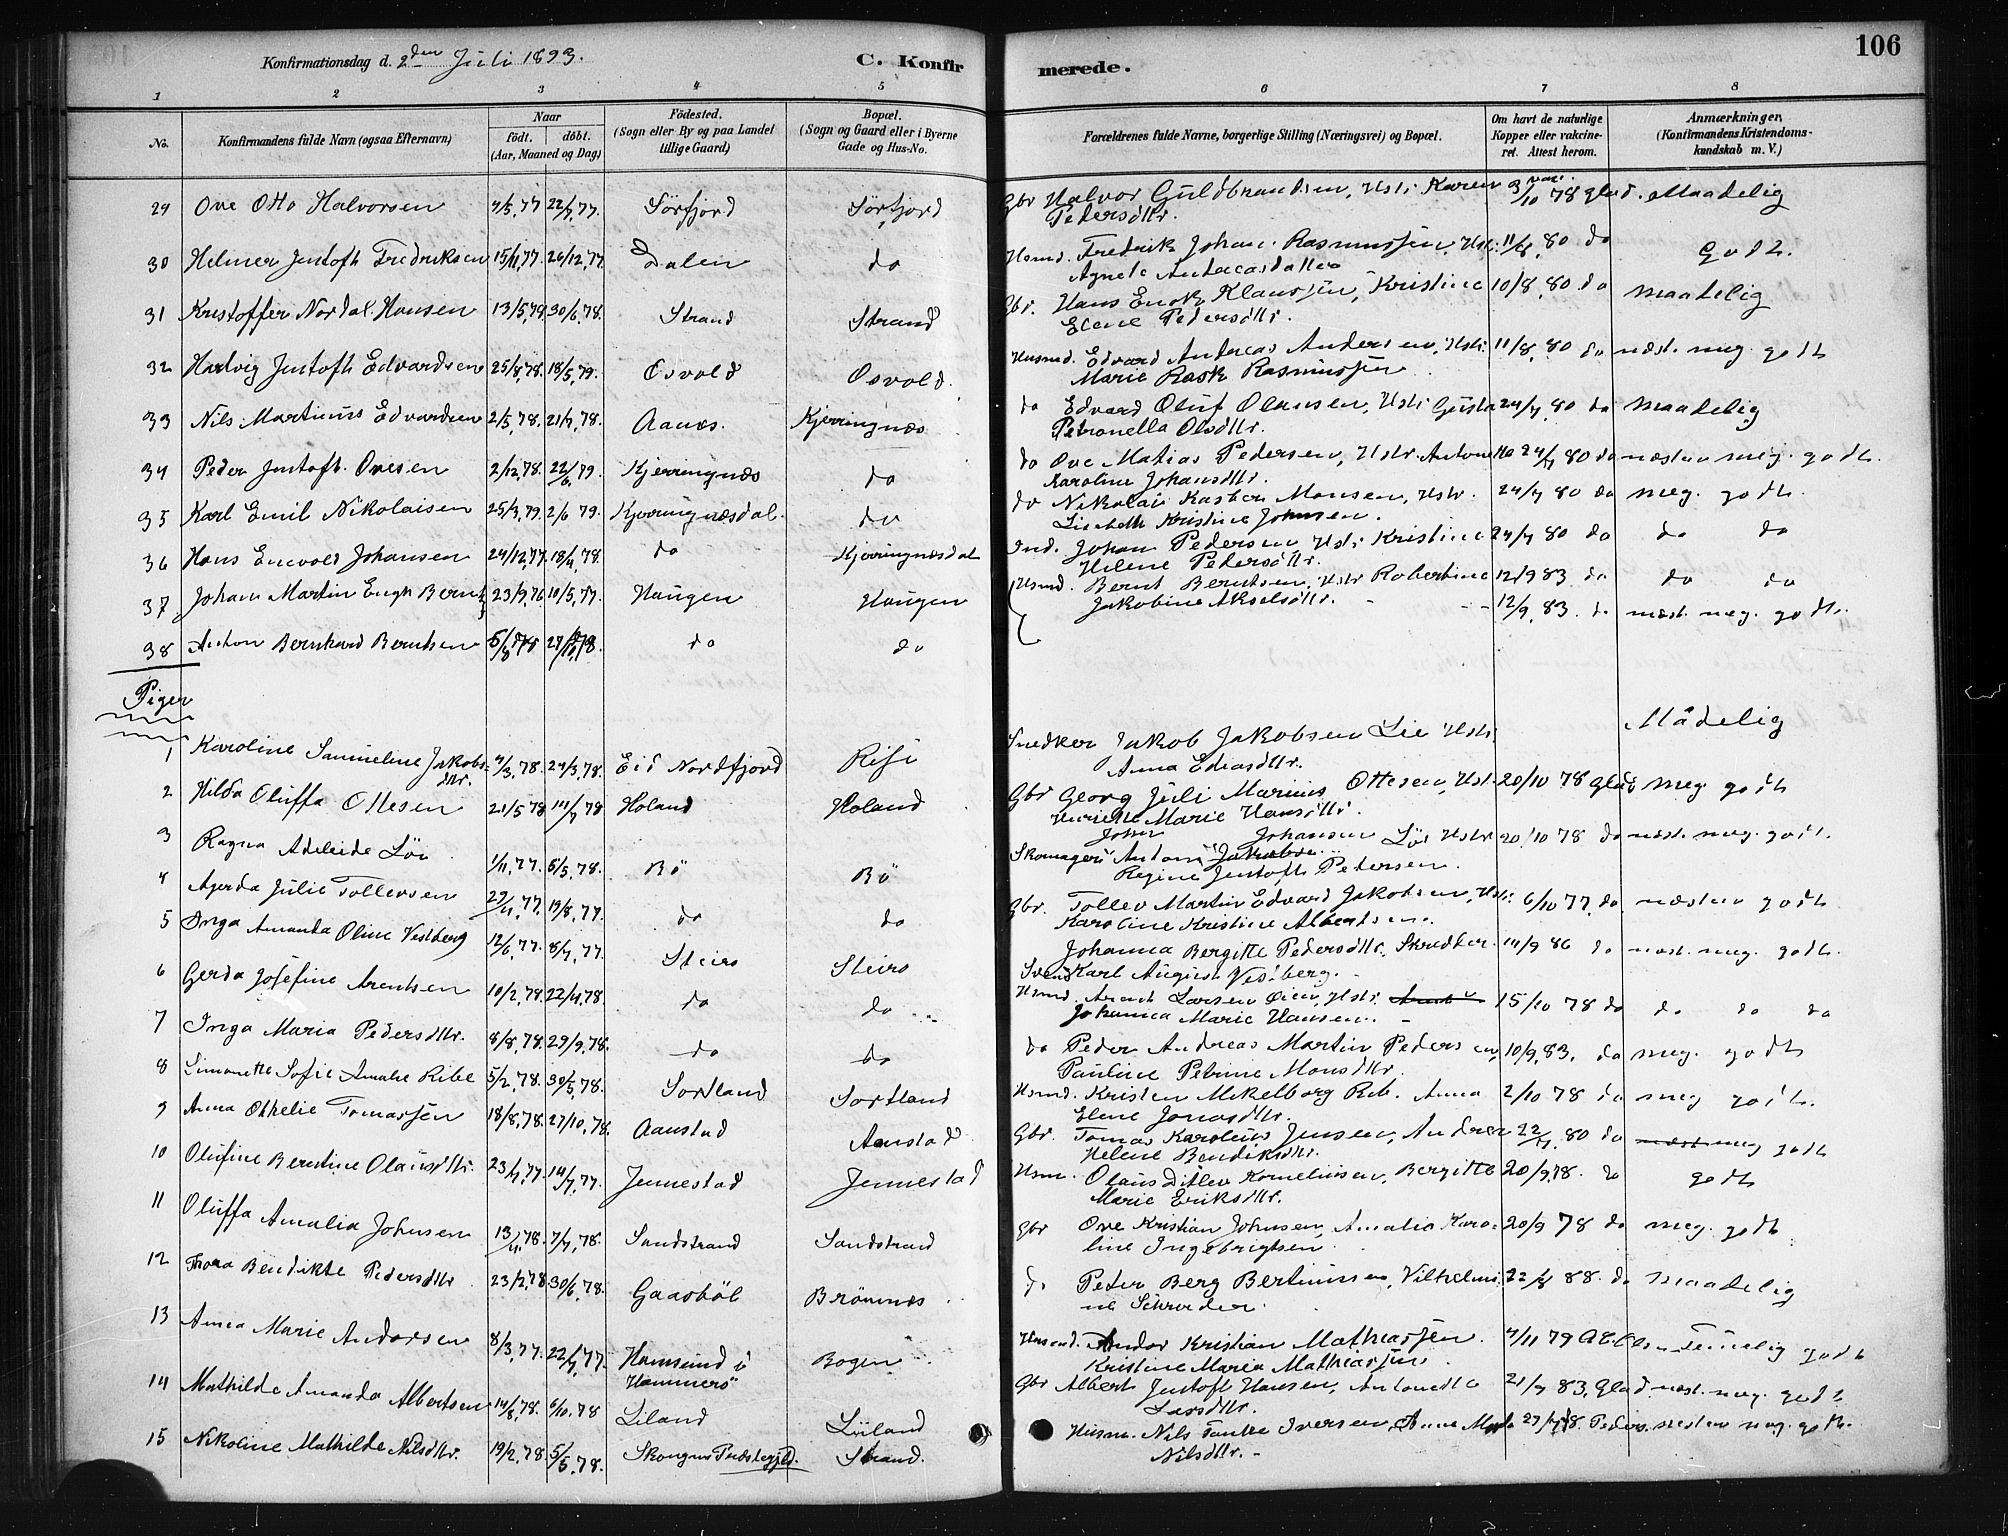 106
Konfirmationsdag d. 2den Juli 1893.
C. Konfir
merede.
1 2 3 4 5 6 7 8
No.
Konfirmandens fulde Navn (ogsaa Efternavn)
Naar
födt. döbt.
(Aar, Maaned og Dag)
Födested.
(Sogn eller By og paa Landet
tillige Gaard)
Bopæl.
(Sogn og Gaard eller i Byerne
Gade og Hus-No.
Forældrenes fulde Navne, borgerlige Stilling (Næringsvei) og Bopæl.
Om havt de naturlige
Kopper eller vakcine-
ret. Attest herom.
Anmærkninger.
(Konfirmandens Kristendoms-
kundskab m. V.)
29 Ove Otto Halvorsen 4/5,77 22/7,77. Sörfjord Sörfjord Gbr Halvor Guldbrandsen, Hstr Karen 3/10 78 Glad. Maadelig
Pedersdtr.
30 Helmer Jentoft Fredriksen 15/11,77. 26/12,77. Dalen do Husmd. Fredrik Johan Rasmussen, Hstr. 11/8,80 do Godt.
Agnete Andreasdatter
31 Kristoffer Nordal Hansen 13/5,78. 30/6,78. Strand Strand Gbr. Hans Enok Klaussen, Kristine 10/8,80 do maadelig
Elene Pedersdtr.
32 Hartvig Jentoft Edvardsen 25/8,78. 18/5,79. Osvold Osvold. Husmd. Edvard Andreas Andersen, Hstr. 11/8,80 do næst. meg. godt
Marie Rask Rasmussen
33 Nils Martinus Edvardsen 2/5,78. 21/7,78. Aanes. Kjerringnæs do Edvard Oluf Olausen, Hstr Gusta 24/7,80 do maadelig
Petronella Olsdtr.
34 Peder Jentoft Ovesen 2/12,78. 22/6,79. Kjerringnæs do do Ove Matias Pedersen, Hstr. Antonette 24/7 80 do næsten meg. godt.
Karoline Johansdtr.
35 Karl Emil Nikolaisen 25/3,79. 2/6 79. Kjerringnæsdal. do do Nikolai Kasber Monsen, Hstr. 24/7 80 do meg. godt.
Lisabeth Kristine Johnsen.
36 Hans Enevold Johansen 24/12,77. 18/4,78. do Kjerringnæsdal Ind. Johan Pedersen Hstr Kristine 24/7 80 do do do
Helene Pedersdtr.
37 Johan Martin Eugh Bernt 23/9,76 10/5,77. Haugen Haugen Husmd. Bernt Berntsen, Hstr Robertine 12/9 83 do do do
Jakobine Akselsdtr. - -- 12/9,83. do næst. meg. godt.
38 Anton Bernhard Berntsen do do
Piger
1 Karoline Samueline Jakobs- 4/3,78. 24/3,78. Eid Nordfjord Rise Snedker Jakob Jakobsen Lie Hstr. Mådelig
dtr. Anna Eliasdtr.
2 Hilda Oluffa Ottesen 21/5 78 14/7 78 Holand Holand Gbr Georg Juli Marius Ottesen, Hstr. 20/10 78 Glad meg godt
Henriette Marie Hansdtr.
3 Ragna Adeleide Löv 1/11,77. 5/5,78. Bö Bö Skomager Anton Johansen Löv Hstr 20/10 78 do næst. meg. godt.
Regine Jentoft Petersen.
4 Agerda Julie Tollevsen 29/4,77. 19/8,77. do do Gbr. Tollev Martin Edvard Jakobsen, Hstr. 6/10 77. do næsten godt.
Karoline Kristine Albertsen.
5 Inga Amanda Oline Vestberg 12/6,77. 8/7,77. Steiro Steiro Johanna Bergitte Pedersdtr. Skredder- 14/9 86 do næst. meg. godt.
Svend Karl August Vestberg.
6 Gerda Josefine Arentsen 10/2,78. 22/4,78. do do Husmd. Arent Larsen Oien, Hstr. 15/10 78 do do do do
Johanna Marie Hansen.
7 Inga Maria Pedersdtr. 8/8,78. 29/9,78. do do do Peder Andreas Martin Pedersen, 10/9,83. do meg. godt
Pauline Petrine Monsdtr.
8 Simonette Sofie Amalie Ribe 5/2,78. 30/5,78. Sortland Sortland Husmd. Kristen Mekelborg Rib. Anna 2/10 78 do meg godt.
Elene Jonasdtr.
9 Anna Othelie Tomassen 18/8,78. 27/10,78. Aanstad Aanstad Gbr. Tomas Karolius Jensen, Andrea 22/7 80 do meg godt
Helene Bendiksdtr.
10 Olufine Berntine Olausdtr. 23/4,77. 14/7,77. Jennestad Jennestad Husm. Olaus Ditlev Korneliussen, Bergitte 20/9,78. do godt
Marie Eriksdtr.
11 Oluffa Amalia Johnsen 13/4,78. 7/7,78. Sandstrand Sandstrand Gbr Ove Kristian Johnsen, Amalia Karo- 20/9 78 do meg. godt
line Ingebrigtsen.
12 Thora Bendikte Pedersdtr 23/2,78 30/6,78. Gaasböl Brönnes do Peter Berg Bertinussen, Vilhelmi- 22/8 88. do maadelig
ne Schröder.
13 Anna Marie Andorsen 8/3,77. 22/7,77. Hamsund i Bogen Husmd. Andor Kristian Mathiassen. 4/11 79 Temelig godt
Hammerö Kristine Maria Mathiassen.
14 Mathilde Amanda Albertsen 14/8,78. 6/10,78 Liland Liland Gbr Albert Jentoft Hansen, Antonette 21/7 83. Glad. næst. meg. godt
Larsdtr.
15 Nikoline Mathilde Nilsdtr. 19/2,78. 5/5,78. Skongnes Præstegjeld. Strand. Husm. Nils Tanke Iversen, Anne Næsten meg. godt.
Nilsdtr.-